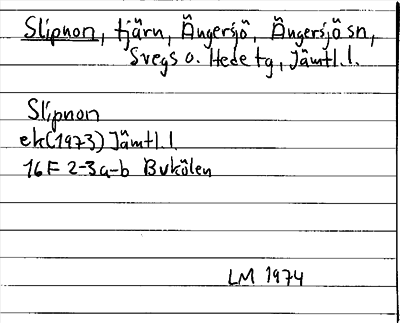 Slipnon, tjärn, Ängersjö, Ängersjö sn,
Svegs o. Hede tg, Jämtl. l.
Slipnon
ek(1973) Jämtl. l.
16F 2-3a-b Bukölen
LM 1974